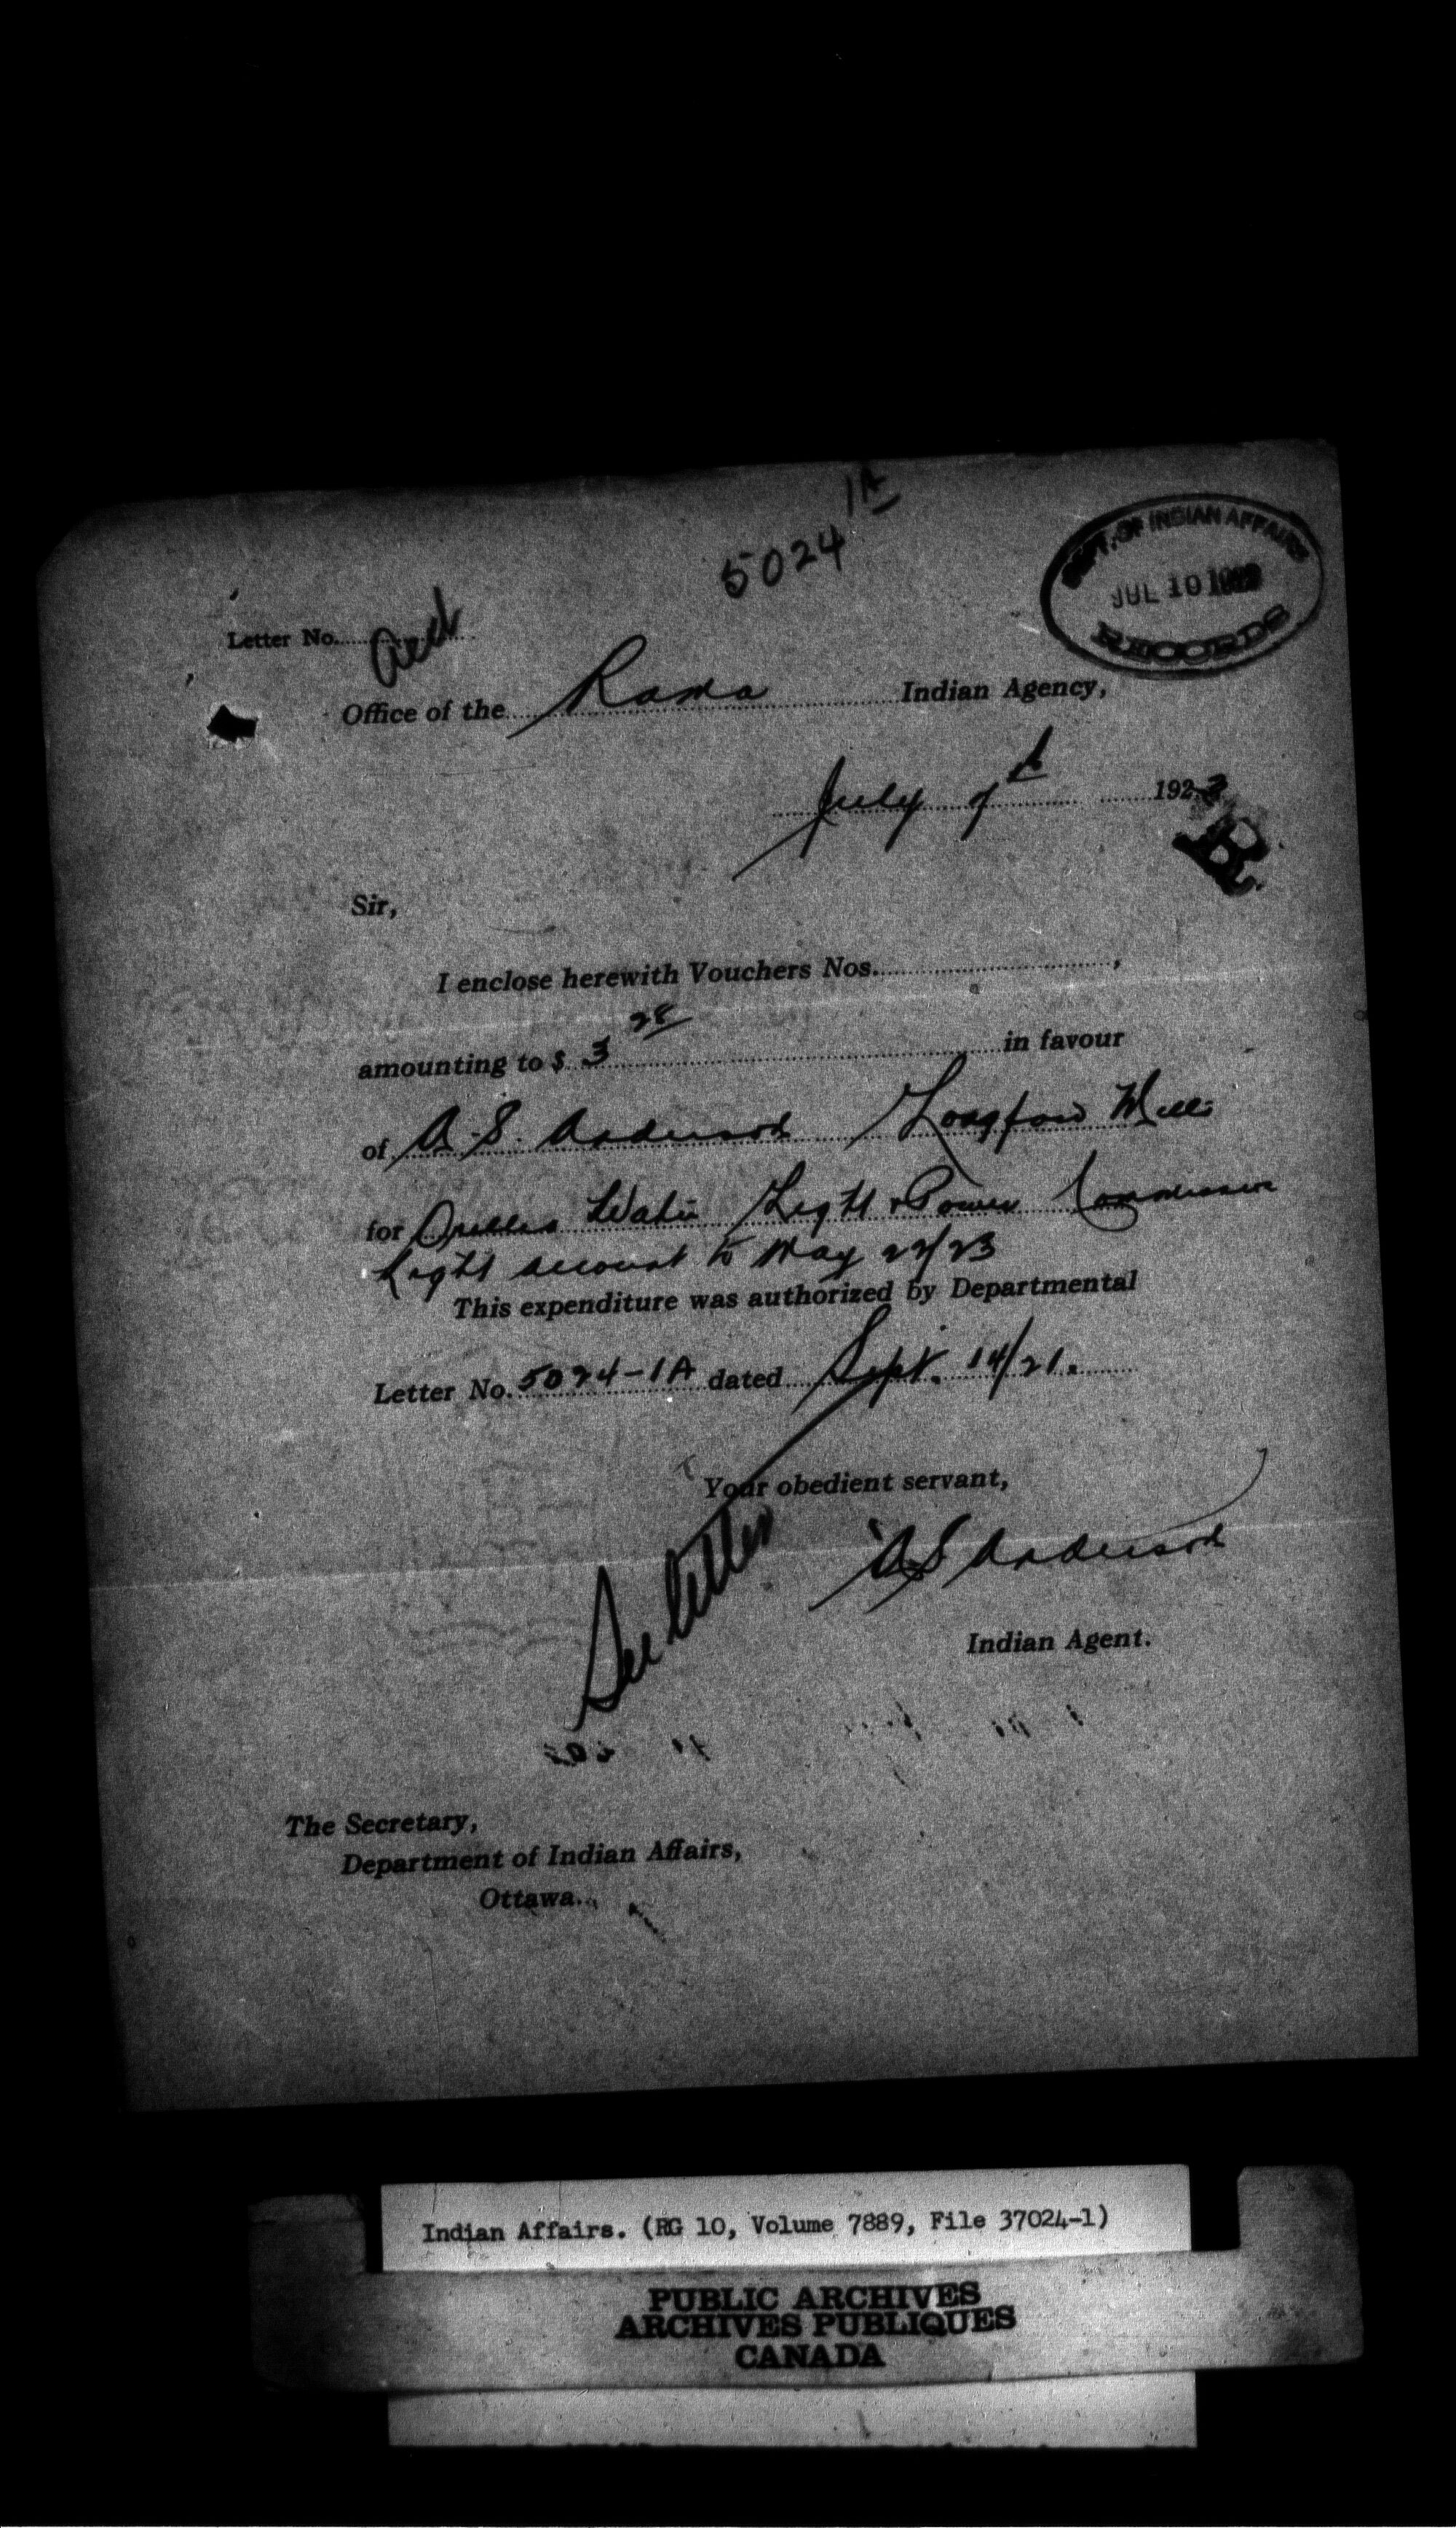 5024 1A
DEPT. OF INDIAN AFFAIRS
JUL 10 1923
RECORDS
Letter No.
Office of the Rama Indian Agency,
July 7th 1923
R.
Sir,
I enclose herewith Vouchers Nos. ,
amounting to $ 3 28 in favour
of A. S. Anderson Longford Mills
for Orillia Water Light & Power Commission
Light account to May 22/23
This expenditure was authorized by Departmental
Letter No. 5024-1A dated Sept. 14/21.
Your obedient servant,
See letter
A S Anderson
Indian Agent.
The Secretary,
Department of Indian Affairs,
Ottawa.
Indian Affairs. (RG 10, Volume 7889, File 37024-1)
PUBLIC ARCHIVES
ARCHIVES PUBLIQUES
CANADA